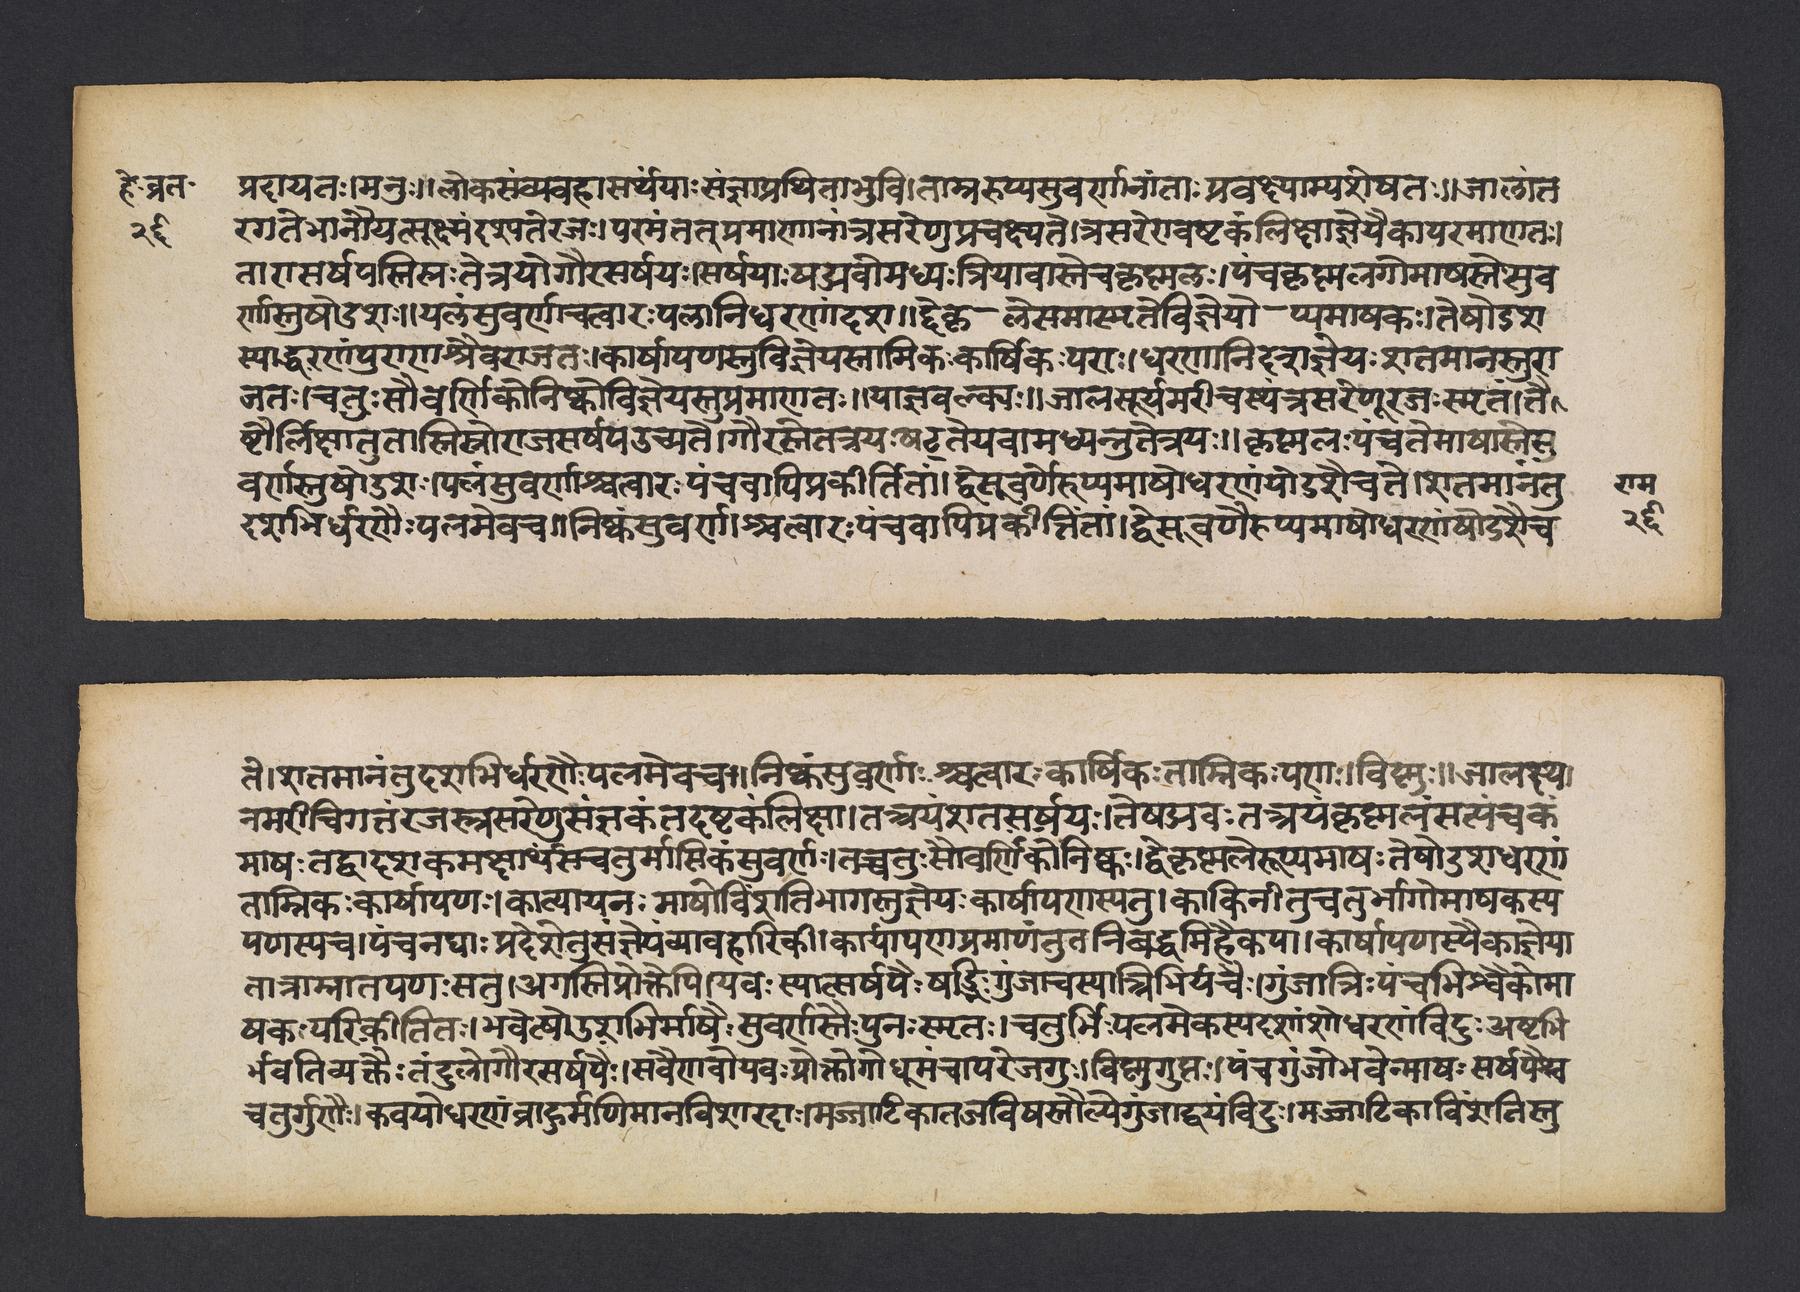 हे·व्रत·
२६
प्रदायतः।मनुः॥लोकसंव्यवहासर्थंयाःसंज्ञाप्रथिताभुवि।ताम्ररूप्यसुवर्णानांताःप्रवक्ष्याम्यशेषतः॥जालांत
रगतेभानौयत्सूक्ष्मंदृश्यतेरजः।परमंतत्प्रमाणानांत्रसरेणुप्रचक्ष्यते।त्रसरेणवष्टकंलिक्षाज्ञेयैकापरमाणतः।
तारासर्षपस्तिस्रःतेत्रयोगौरसर्षयः।सर्षयाःषड्यवोमध्यःत्रियावास्तेचकृष्मलः।पंचकृष्मलगोमाषस्तेसुव
र्णास्तुषोडश॥यलंसुवर्णाचत्वारःपलानिधरणंदश॥द्वेकृ-लेसमास्मृतेविज्ञेयो-प्यमाषकः।तेषोडश
स्याद्धरणंपुराणश्चैवराजतः।कार्षापणस्तुविज्ञेयस्तामिकःकार्षिकःपराः।धरणानिदशज्ञेयःशतमानस्तुरा
जतः।चतुःसौवर्णिकोनिष्कोविज्ञेयस्तुप्रमाणतः॥याज्ञवल्क्यः॥जालसूर्यमरीचस्थंत्रसरेणूरजःस्मृतं।ते
ष्टौर्लिक्षातुतास्तिस्रोराजसर्षपउच्यते।गौरस्तेतत्रयःषट्तेयवामध्यन्तुतेत्रयः॥कृष्मलःपंचतेमाषास्तेसु
वर्णास्तुषोडशः।पलंसुवर्णाश्चत्वारःपंचवापिप्रकीर्तितां।द्वेसूवर्णेरूप्यमाषोधरणंयोडशैचते।शतमानंतु
दशभिर्धरणैःपलमेवच॥निष्कंसुवर्णा।श्चत्वारःपंचवापिप्रकीत्तिंतां।द्वेसूवर्णैरूप्यमाषोधरणंषोडशैच
राम
२६
ते।शतमानंतुदशभिर्धरणैःपलमेवच॥निष्कंसुवर्णाःश्चत्वारःकार्षिकःताम्निकःपराः।विष्मुः॥जालस्थ।
नमरीचिगतंरजस्त्रसरेणुसंज्ञकंतदष्टकंलिक्षा।तत्त्रयंशतसर्षयः।तेषड्यवःतत्रयंकृष्मलंसत्पंचकं
माषःतद्वादशकमक्षार्थंसचतुर्मासिकंसुवर्णः।तच्चतुःसौवर्णिकोनिष्कः।द्वेकृष्मलेरूप्यमाषःतेषोडशधरणं
ताम्निकःकार्यापणः।कात्यायनःमाषोविंशतिभागस्तुज्ञेयःकार्षापरास्यतु।काकिनीतुचतुर्भागोमाषकस्य
पणस्यच।पंचनद्याःप्रदेशेतुसंज्ञेयंव्यावहारिकी।कार्यापणप्रमाणंतुतनिबद्धमिहैकपा।कार्षापणस्यैकाज्ञेया
तान्नाम्नातपणःसतु।अगस्तिप्रोक्तेपि।यवःस्यात्सर्षपैःषड्भिःगुंजाचस्यात्त्रिभिर्यवैः।गुंजात्रिःपंचभिश्चैकोमा
षकःपरिकीतितः।भवेत्षोडशभिर्माषैःसुवर्णस्तैःपुनःस्मृतः।चतुर्भिःपलमेकस्यदशांशोधरणंविदुःअष्टभि
र्भवतिव्यक्तैःतंदुलोगौरसर्षपैः।सवैणवोयवःप्रोक्तोगोधूमंचापरेजगुः।विष्मुगुप्तः।पंचगुंजोभवेन्माषःसर्षपैश्च
चतुर्गुणैः।कवयोधरणंप्राहुर्मणिमानविशारदाः।मज्जाटिकातजविषस्तौल्येगुंजाद्वयंविदुः।मज्जाटिकाविंशतिस्तु